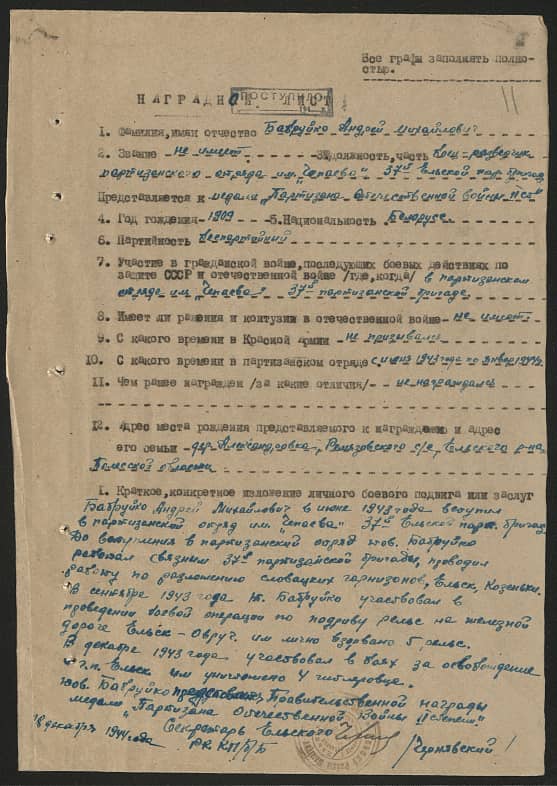 Все графы заполнять полно-
стью.
ПОСТУПИЛО
НАГРАДНОЙ ЛИСТ
11
1. Фамилия, имя отчество Бабруйко Андрей Михайлович
2. Звание не имеет 3. Должность, часть боец-разведчик
партизанского отряда им. "Чепаева" 37й Ельской пар. бригад
Представляется к медали "Партизана Отечественной войны II ст"
4. Год рождения - 1909 - 5. Национальность Белорусс
6. Партийность беспартийный
7. Участие в гражданской войне, последующих боевых действиях по
защите СССР и отечественной войне /где, когда/ в партизанском
отряде им. "Чепаева" 37й партизанской бригаде
8. Имеет ли ранения и контузии в отечественной войне - не имеет
9. С какого времени в Красной Армии не призывался
10. С какого времени в партизанском отряде с июня 1943 года по январь 1944 г.
11. Чем ранее награжден /за какие отличия/ - не награждался
12. Адрес места рождения представляемого к награждению и адрес
его семьи - дер. Александровка, Ремезовского с/с, Ельского р-на
Полесской области
1. Краткое, конкретное изложение личного боевого подвига или заслуг
Бабруйко Андрей Михайлович в июне 1943 года вступил
в партизанский отряд им. "Чепаева" 37й Ельской парт. бригад
До вступления в партизанский отряд тов. Бабруйко
работал связным 37й партизанской бригады, проводил
работу по разложению словацких гарнизонов, Ельск, Козеньки.
В сентябре 1943 года т. Бабруйко участвовал в
проведении боевой операции по подрыву рельс на железной
дороге Ельск - Овруч. им лично взорвано 5 рельс.
В декабре 1943 года участвовал в боях за освобождение
г.п. Ельск им уничтожено 4 гитлеровце.
тов. Бабруйко Правительственной награды
медали "Партизана Отечественной Войны II степени"
Секретарь Ельского
18 декабря 1944 года
РК КП/б/Б
/Чернявский/